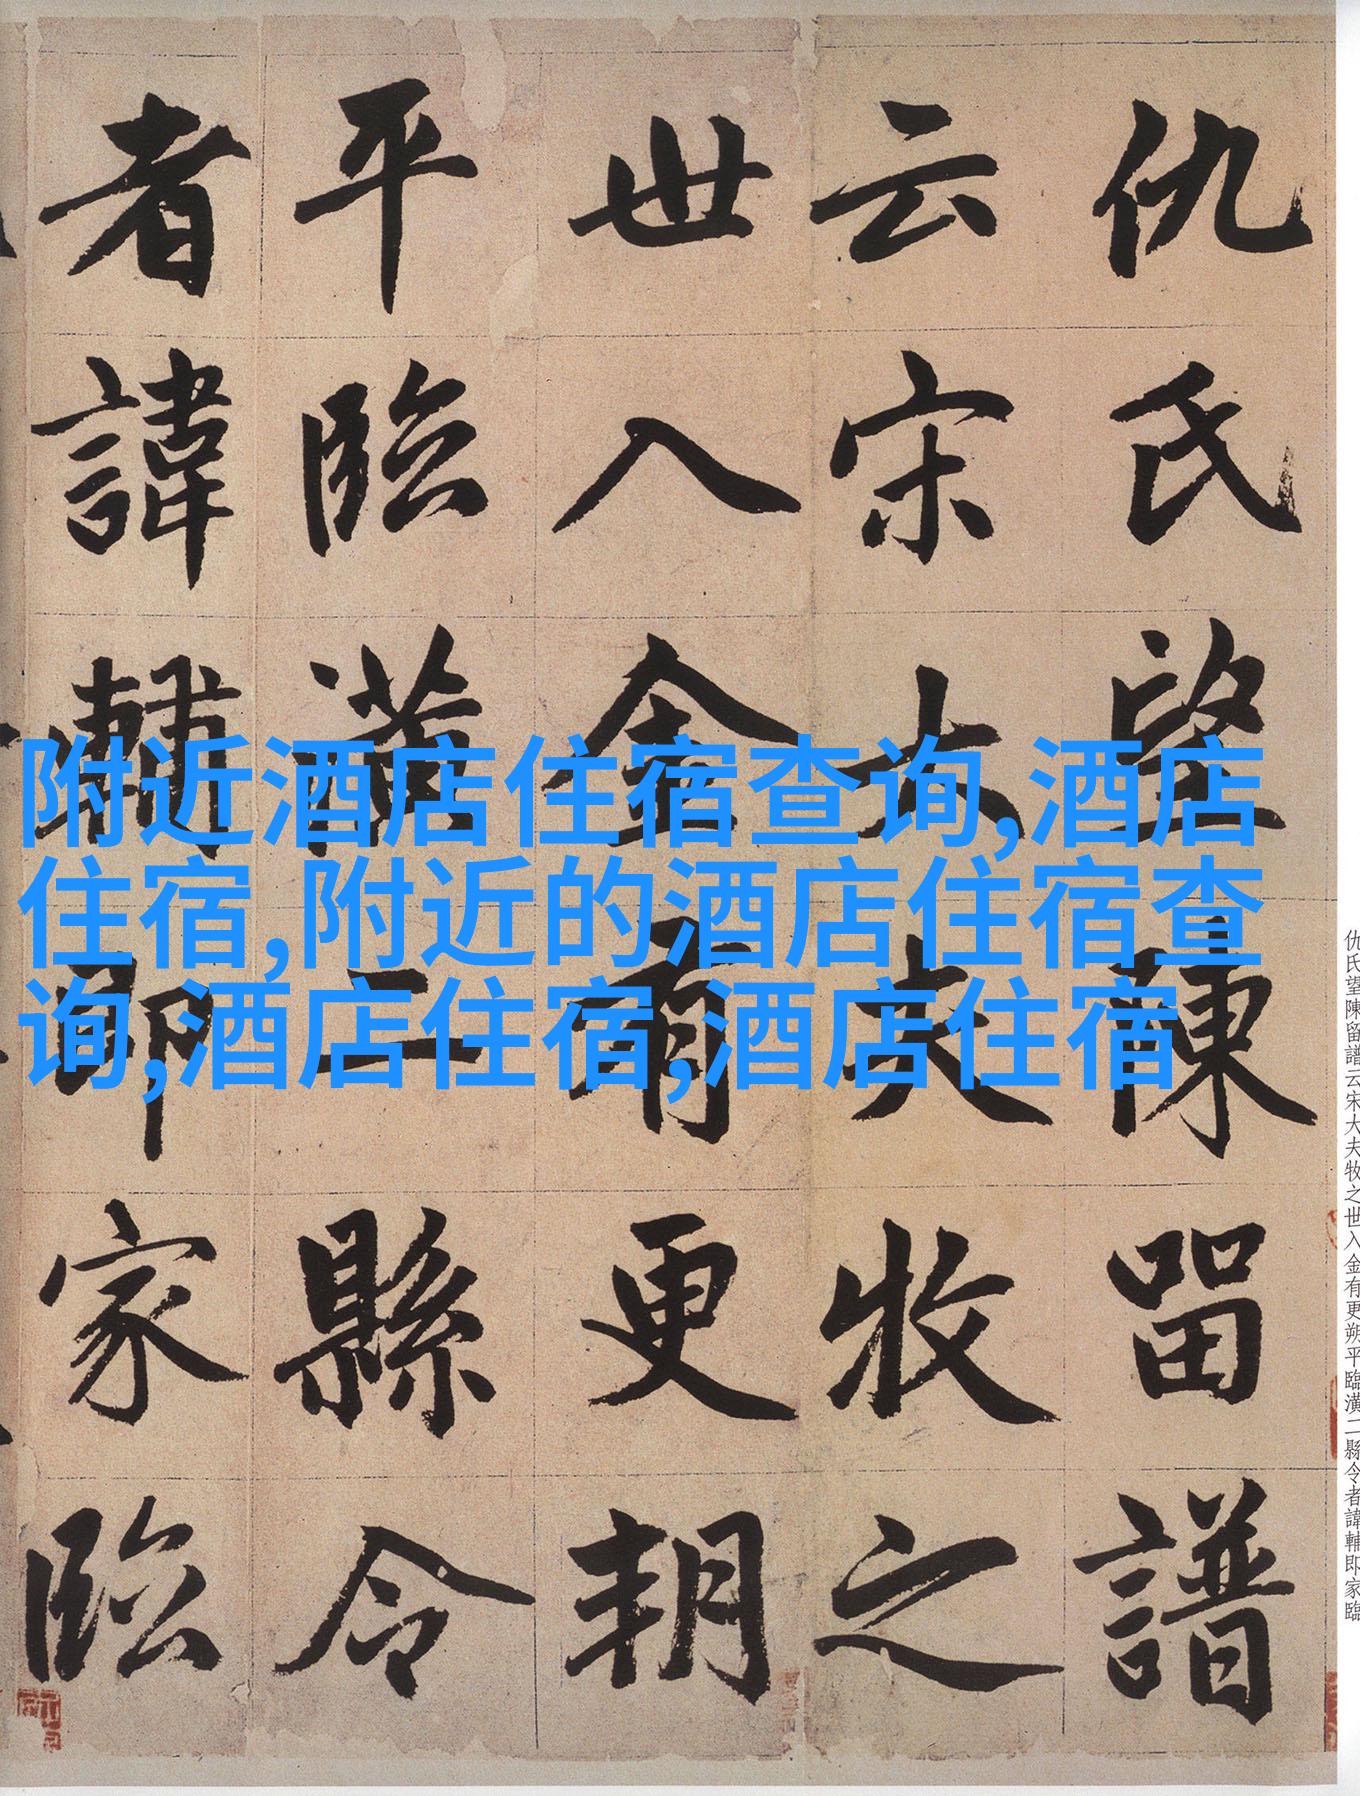 仇氏望陳留譜
云宋大夫牧之
世入金有更朔
平臨潢二縣令
者諱輔即家臨
附近酒店住宿查询,酒店
住宿,附近的酒店住宿查
询,酒店住宿,酒店住宿
仇氏望陳留譜云宋大夫牧之世入金有更朔平臨潢二縣令者諱輔即家臨